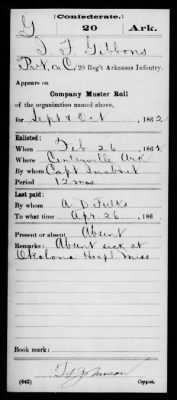 (Confederate.)
G 20 Ark.
T. F. Gibbons
Pvt, Co. C, 20 Reg't Arkansas Infantry.
Appears on
Company Muster Roll
of the organization named above,
for Sept & Oct, 1862
Enlisted:
When Feb 26, 186
Where Centerville Ark
By whom Capt
Period 12 mos
Last paid:
By whom A. D. Fulks
To what time Apr 26, 186
Present or absent Absent
Remarks: Absent sick at
Okolona Hospl Miss
Book mark:
(642) Copyist.